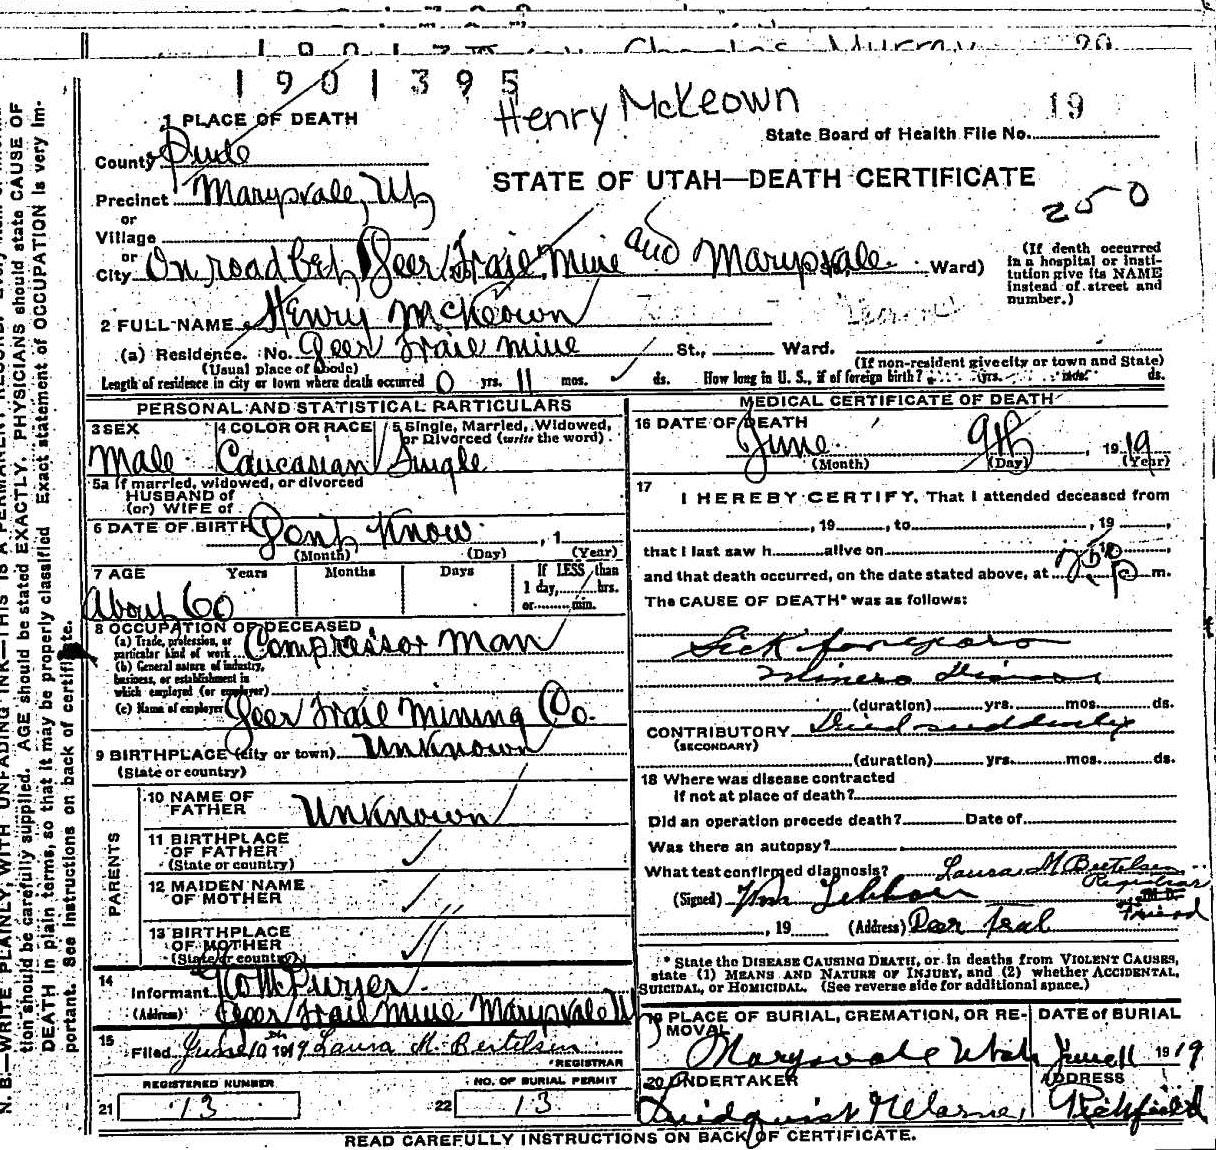 Charles Murray 20
1901395
Henry McKeown
19
1 PLACE OF DEATH
State Board of Health File No.
County Piute
STATE OF UTAH—DEATH CERTIFICATE
Precinct Marysvale, Ut
250
or
Village
or
City On road bet Deer Trail Mine and Marysvale Ward)
(If death occurred in a hospital or institution give its NAME instead of street and number.)
2 FULL NAME Henry McKeown
(a) Residence. No. Deer Trail Mine St., Ward.
(Usual place of abode)
(If non-resident give city or town and State)
Length of residence in city or town where death occurred 0 yrs. 11 mos. ds. How long in U. S., if of foreign birth? yrs. mos. ds.
PERSONAL AND STATISTICAL PARTICULARS
3 SEX
Male
4 COLOR OR RACE
Caucasian
5 Single, Married, Widowed,
or Divorced (write the word)
Single
5a If married, widowed, or divorced
HUSBAND of
(or) WIFE of
6 DATE OF BIRTH Dont Know , 1
(Month) (Day) (Year)
7 AGE Years Months Days
If LESS than
1 day, hrs.
or min.
About 60
8 OCCUPATION OF DECEASED
(a) Trade, profession, or
particular kind of work Compressor Man
(b) General nature of industry,
business, or establishment in
which employed (or employer)
(c) Name of employer Deer Trail Mining Co.
9 BIRTHPLACE (city or town) Unknown
(State or country)
PARENTS
10 NAME OF
FATHER Unknown
11 BIRTHPLACE
OF FATHER
(State or country)
12 MAIDEN NAME
OF MOTHER
13 BIRTHPLACE
OF MOTHER
(State or country)
14
Informant
(Address) Deer Trail Mine Marysvale U
15
Filed June 10th 1919 Laura M. Bertelsen
REGISTRAR
REGISTERED NUMBER
21 13
NO. OF BURIAL PERMIT
22 13
MEDICAL CERTIFICATE OF DEATH
16 DATE OF DEATH
June 9th, 1919
(Month) (Day) (Year)
17
I HEREBY CERTIFY, That I attended deceased from
, 19 , to , 19 ,
that I last saw h alive on ,
and that death occurred, on the date stated above, at P m.
The CAUSE OF DEATH* was as follows:
Sick
Miners
(duration) yrs. mos. ds.
CONTRIBUTORY Died suddenly
(SECONDARY)
(duration) yrs. mos. ds.
18 Where was disease contracted
if not at place of death?
Did an operation precede death? Date of
Was there an autopsy?
What test confirmed diagnosis? Laura M Bertelsen
Registrar
(Signed) M. D.
Friend
, 19 (Address) Deer Trail
* State the DISEASE CAUSING DEATH, or in deaths from VIOLENT CAUSES,
state (1) MEANS AND NATURE OF INJURY, and (2) whether ACCIDENTAL,
SUICIDAL, or HOMICIDAL. (See reverse side for additional space.)
19 PLACE OF BURIAL, CREMATION, OR RE-
MOVAL
Marysvale Utah
DATE of BURIAL
June 11 1919
20 UNDERTAKER
ADDRESS
Richfield
READ CAREFULLY INSTRUCTIONS ON BACK OF CERTIFICATE.
N. B.—WRITE PLAINLY, WITH UNFADING INK—THIS IS A PERMANENT RECORD.
tion should be carefully supplied. AGE should be stated EXACTLY. PHYSICIANS should state CAUSE OF
DEATH in plain terms, so that it may be properly classified. Exact statement of OCCUPATION is very im-
portant. See instructions on back of certificate.